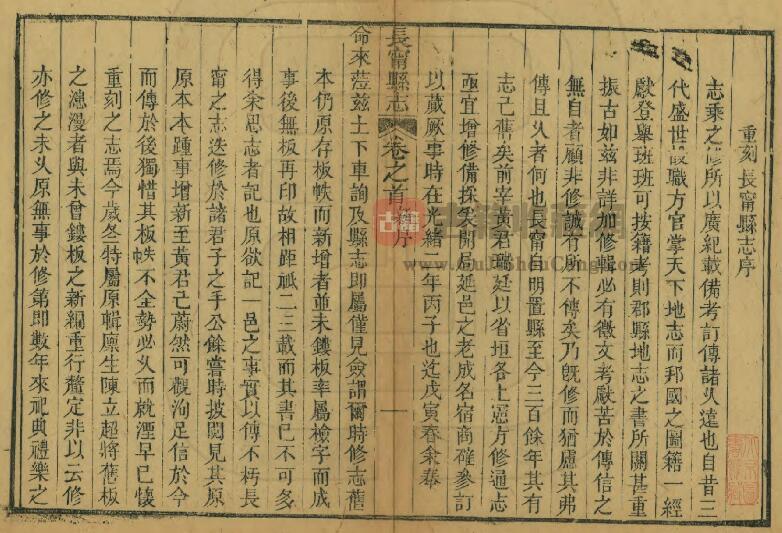 重刻長甯縣志序
志乘之修所以廣紀載備考訂傳諸久遠也自昔三
代盛世設職方官掌天下地志而邦國之圖籍一經
獻登舉班班可按籍考則郡縣地志之書所關甚重
振古如茲非詳加修輯必有徵文考獻苦於傳信之
無自者顧非修誠有所不傳矣乃旣修而猶慮其弗
傳且久者何也長甯自明置縣至今三百餘年其有
志已舊矣前宰黃君瓏廷以省垣各上憲方修通志
亟宜增修備採爰開局延邑之老成名宿商確參訂
以蕆厥事時在光緒二年丙子也迄戊寅春余奉
長甯縣志 卷之首 序 一
命來蒞茲土下車詢及縣志即屬僅見僉謂爾時修志舊
本仍原存板帙而新增者並未鏤板率屬檢字而成
事後無板再印故相距祗二三載而其書已不可多
得余思志者記也原欲記一邑之事實以傳不朽長
甯之志迭修於諸君子之手公餘嘗時披閱見其原
原本本踵事增新至黃君已蔚然可觀洵足信於今
而傳於後獨惜其板帙不全勢必久而就湮早已懷
重刻之志焉今歲冬特屬原輯廩生陳立超將舊板
之漶漫者與未曾鏤板之新編重行釐定非以云修
亦修之未久原無事於修第即數年來祀典禮樂之